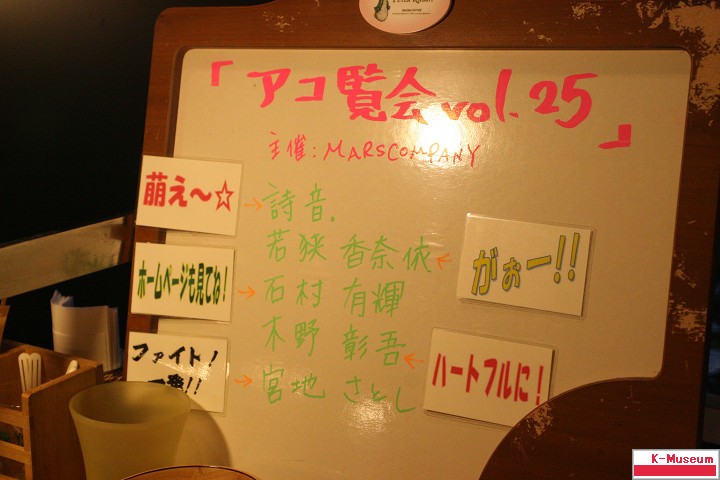 「アコ覧会vol.25」
主催:MARSCOMPANY
萌え〜☆
詩音.
若狭 香奈依
がぉー!!
ホームページも見てね!
石村 有輝
木野 彰吾
ハートフルに!
ファイト!
発!!
宮地 さとし
K-Museum